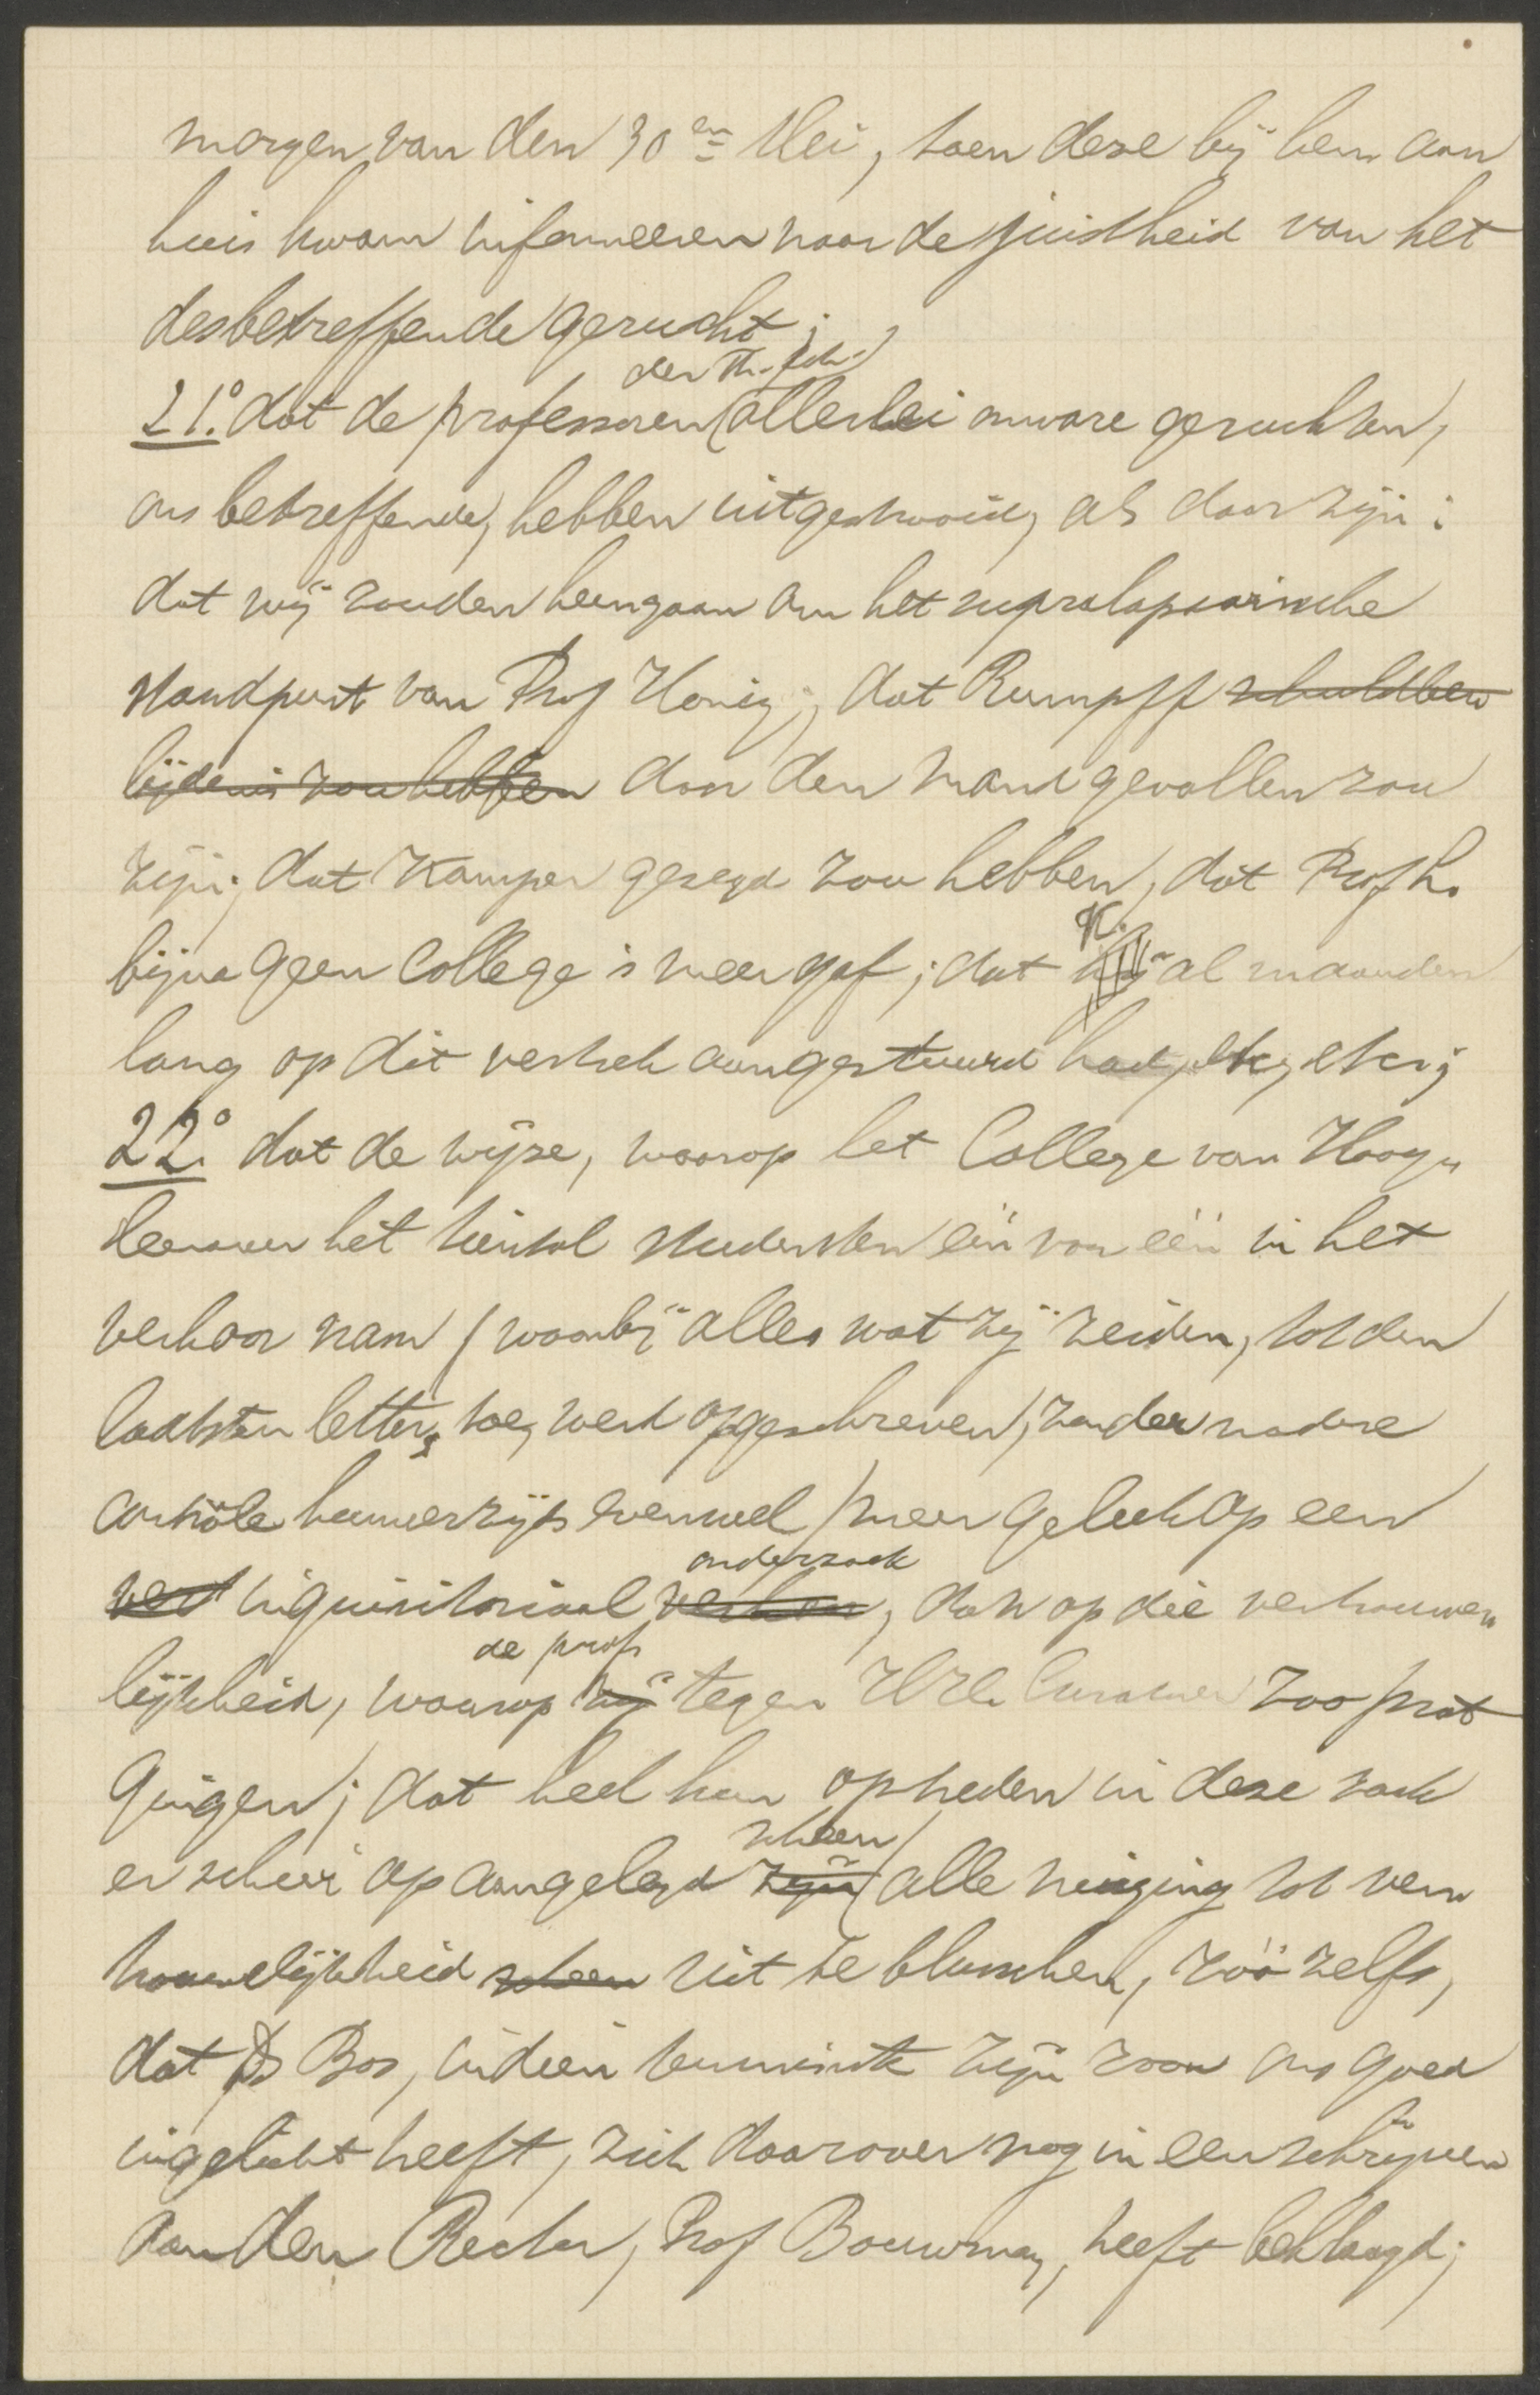 morgen van den 30en Mei, toen deze bij hem aan
huis kwam informeeren naar de juistheid van het
desbetreffende gerucht;
der Th. Sch.
21.° dat de professoren allerlei onware geruchten,
ons betreffende, hebben uitgestrooid, als daar zijn:
dat wij zouden heengaan om het supralapsarische
standpunt van Prof Honig; dat Rumpff schuldbe-
lijdenis zou hebben door den mand gevallen zou
zijn; dat Kamper gezegd zou hebben, dat Prof h.
bijna geen college's meer gaf; dat K. al maanden
lang op dit vertrek aangestuurd had, etc, etc;
22.° dat de wijze, waarop het College van Hoog-
leeraren het tiental studenten één voor één in het
verhoor nam (waarbij alles wat zij zeiden, tot den
laatsten letter toe, werd opgeschreven, zonder nadere
contrôle hunnerzijds evenwel) meer geleek op een
onderzoek
inquisitoriaal verhoor, dan op die vertrouwe-
de prof
lijkheid, waarop hij tegen Curatoren zoo prat
gingen; dat heel hun optreden in deze zaak
scheen
er op aangelegd zijn alle neiging tot ver-
trouwelijkheid scheen uit te blusschen, zóó zelfs,
dat Ds Bos, indien tenminste zijn zoon ons goed
ingelicht heeft, zich daarover nog in een schrijven
aan den Rector, Prof Bouwman, heeft beklaagd;